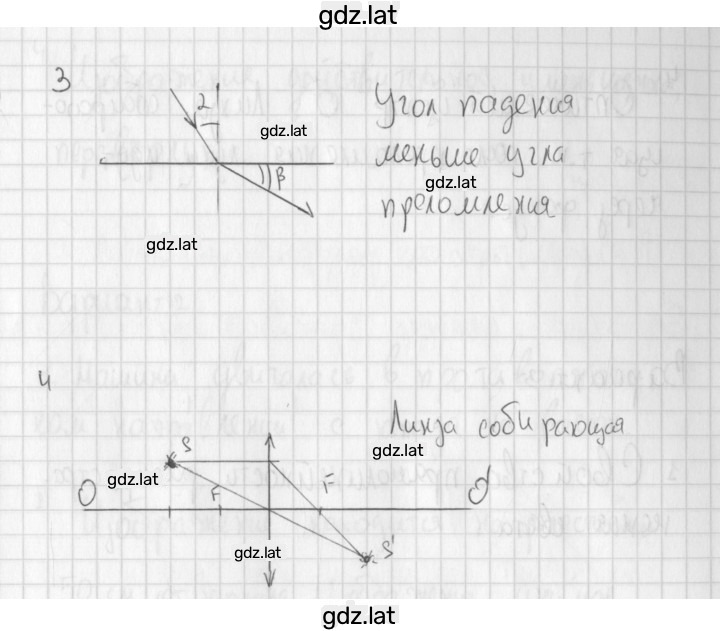 gdz.lat
3
2
gdz.lat
Угол падения
меньше угла
gdz.lat
преломления
β
gdz.lat
4
Линза собирающая
gdz.lat
S
gdz.lat
O
F
F
O'
gdz.lat
S'
gdz.lat